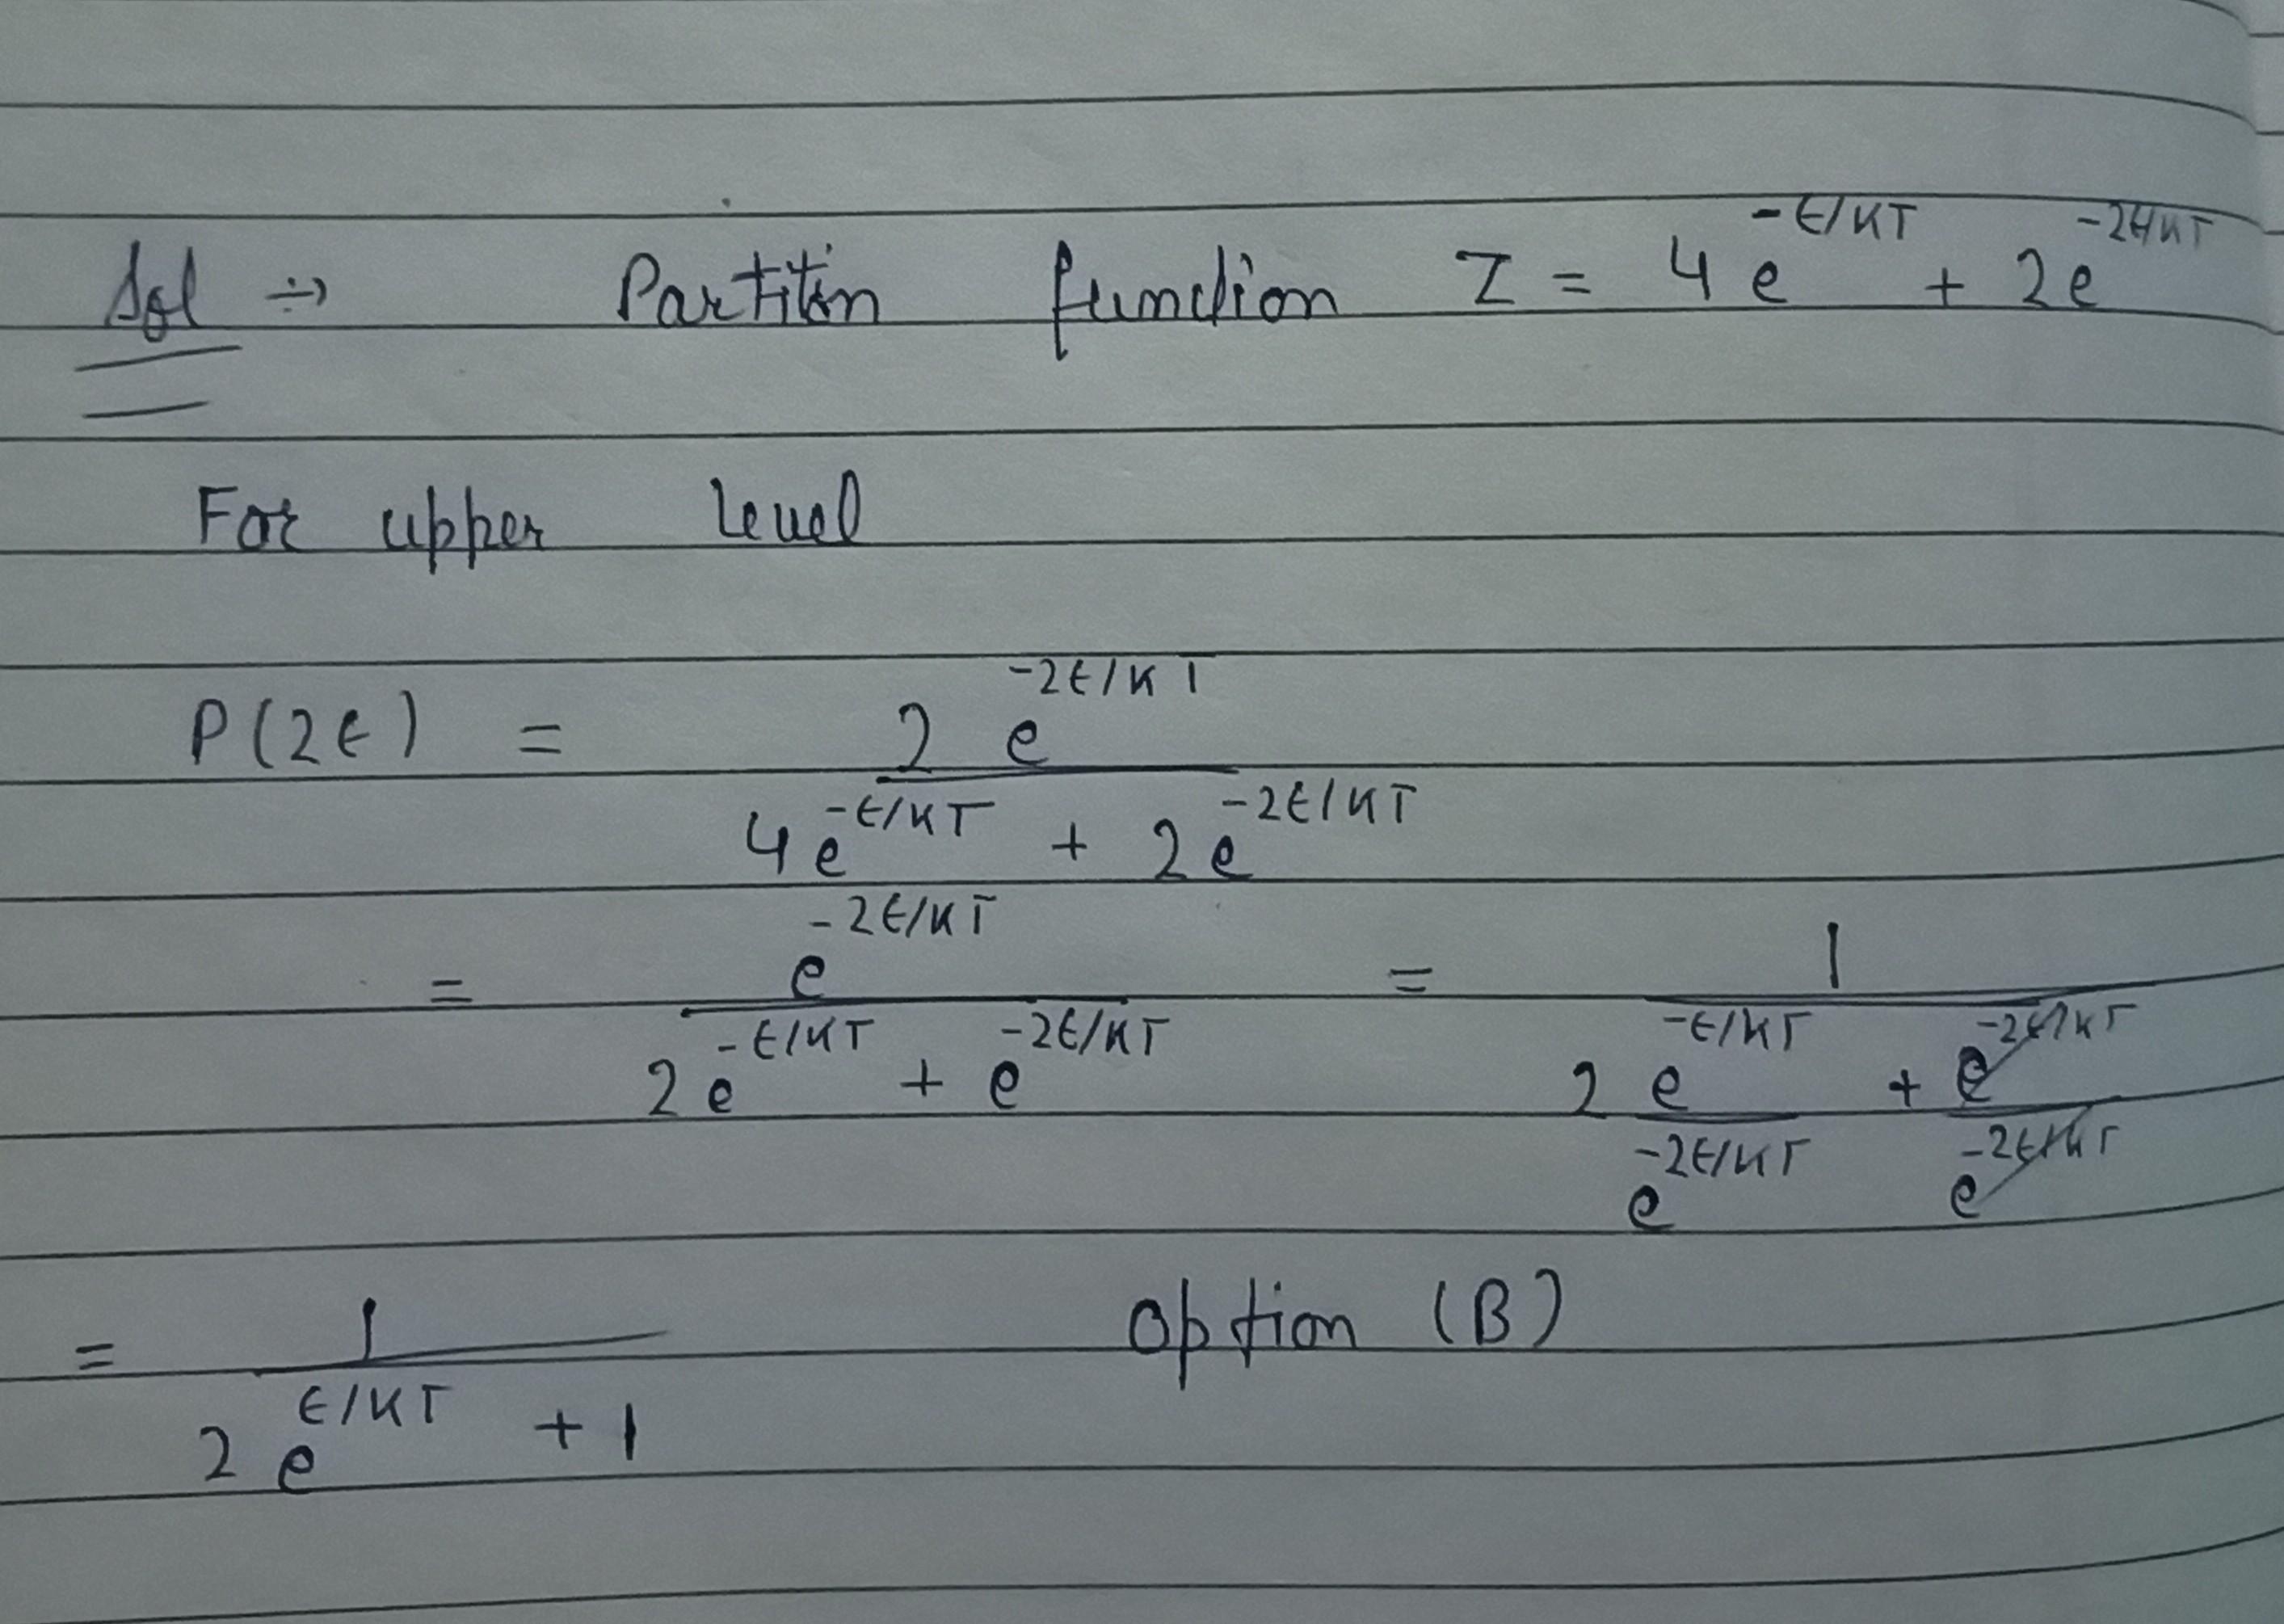 Sol ÷→ Partition function Z = 4 e^{-ϵ/KT} + 2e^{-2ϵ/KT}
For upper level
P(2ϵ) = \frac{2 e^{-2ϵ/KT}}{4e^{-ϵ/KT} + 2e^{-2ϵ/KT}}
= \frac{e^{-2ϵ/KT}}{2e^{-ϵ/KT} + e^{-2ϵ/KT}} = \frac{1}{2 \frac{e^{-ϵ/KT}}{e^{-2ϵ/KT}} + \frac{e^{-2ϵ/KT}}{e^{-2ϵ/KT}}}
= \frac{1}{2 e^{ϵ/KT} + 1} Option (B)